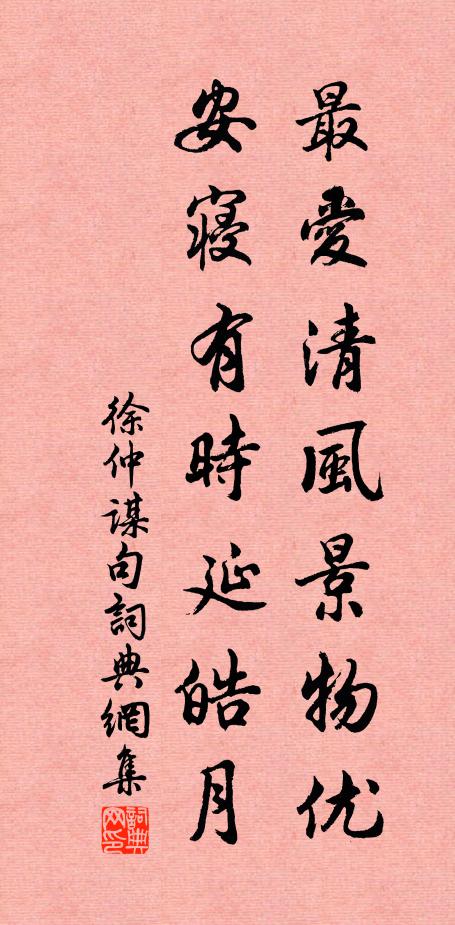 最愛清風景物优
安寢有時延皓月
徐仲謀句詞典網集
詞典网印